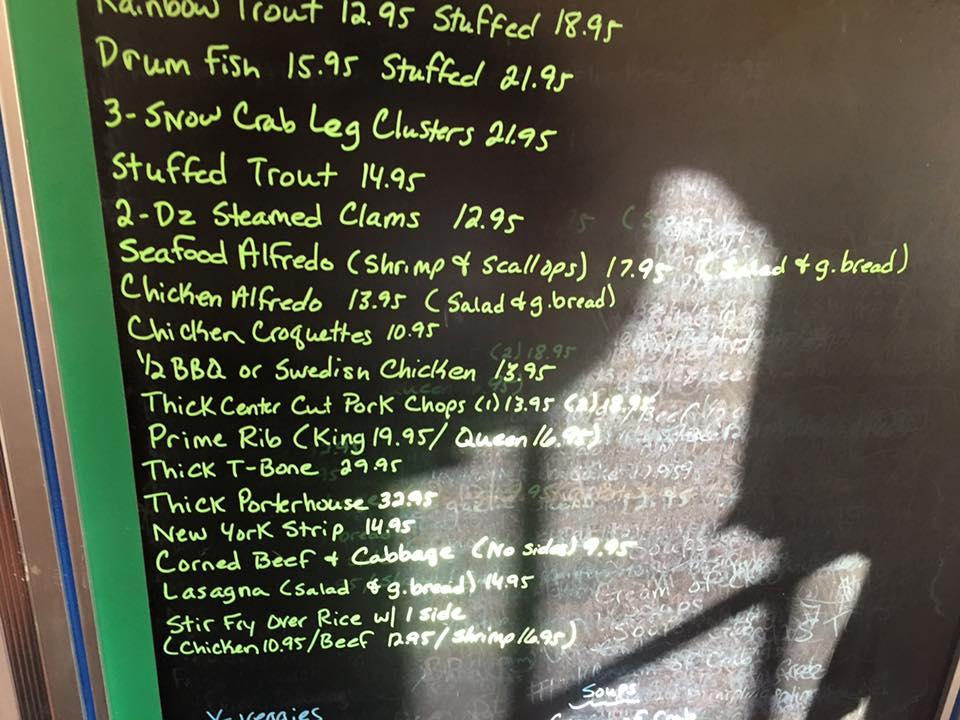 Rainbow Trout 12.95 Stuffed 18.95
Drum Fish 15.95 Stuffed 21.95
3-Snow Crab Leg Clusters 21.95
Stuffed Trout 14.95
2-Dz Steamed Clams 12.95
Seafood Alfredo (Shrimp & Scallops) 17.95 (Salad & g.bread)
Chicken Alfredo 13.95 (Salad & g.bread)
Chicken Croquettes 10.95
1/2 BBQ or Swedish Chicken 13.95
Thick Center Cut Pork Chops (1) 13.95 (2) 18.95
Prime Rib (King 19.95/ Queen 16.95)
Thick T-Bone 29.95
Thick Porterhouse 32.95
New York Strip 14.95
Corned Beef & Cabbage (No sides) 9.95
Lasagna (Salad & g.bread) 14.95
Stir Fry Over Rice w/ 1 side
(Chicken 10.95/Beef 12.95/Shrimp 16.95)
Soups